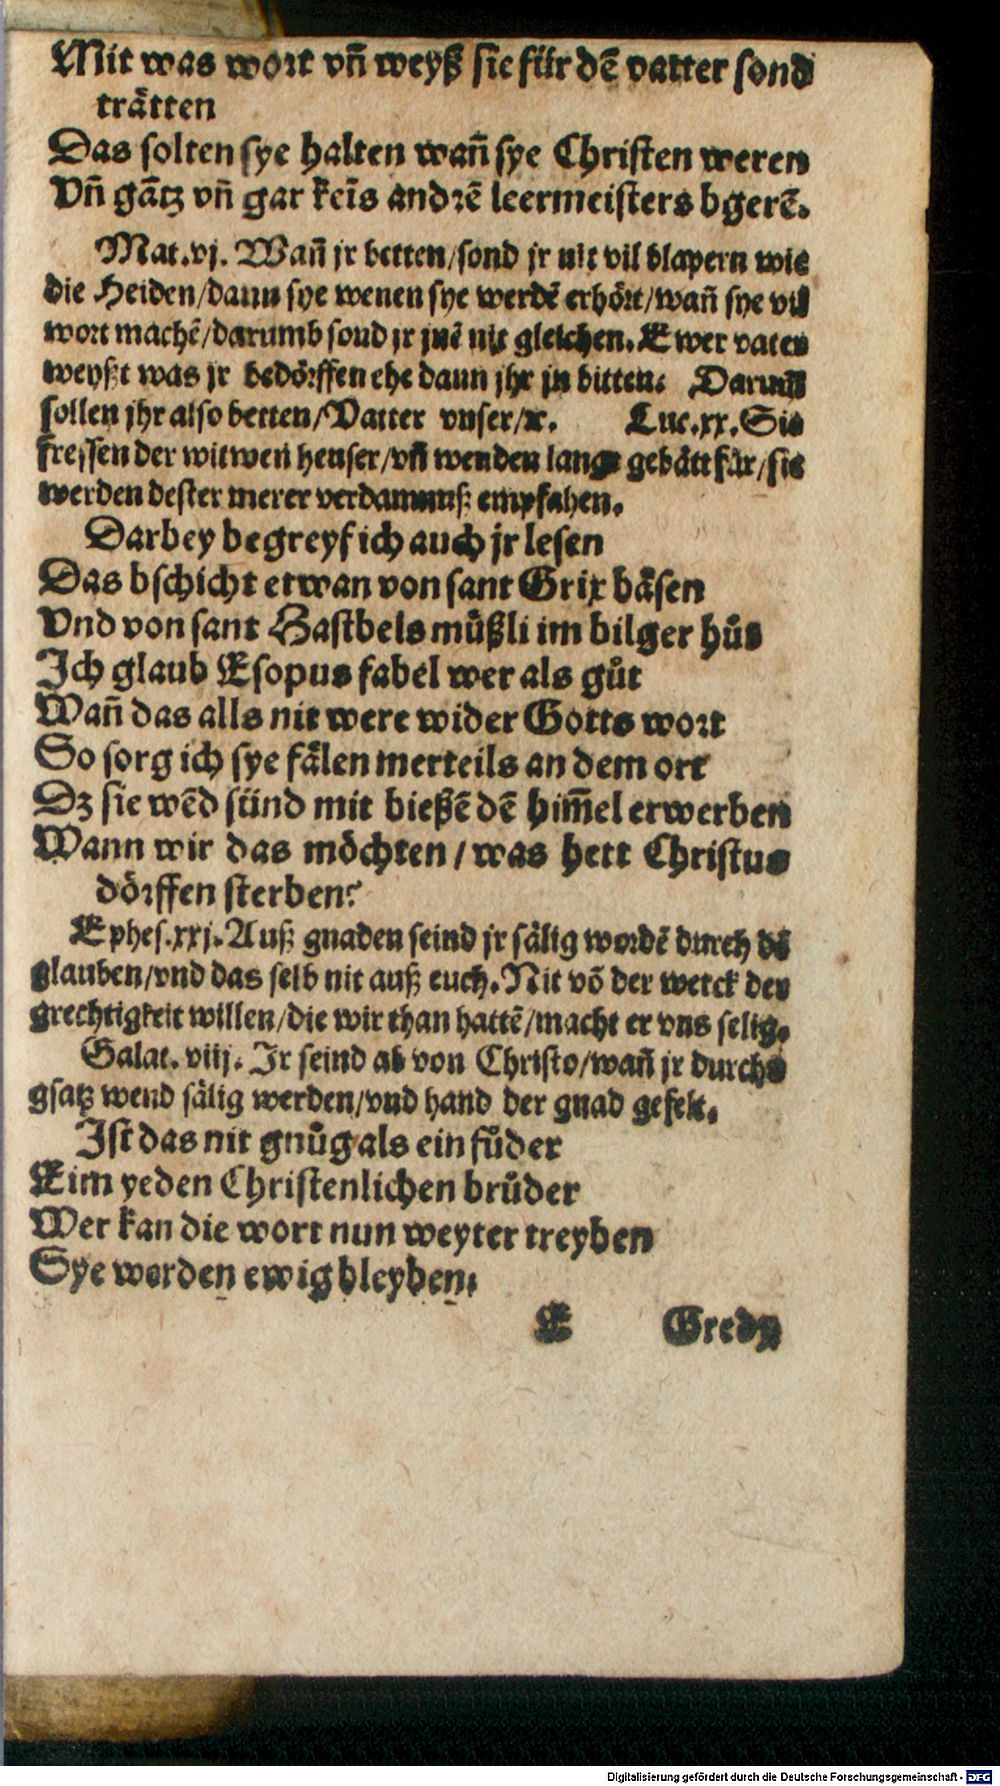 Mit was wort vñ weyß sie für dē vatter sond
trätten
Das solten sye halten wañ sye Christen weren
Vñ gātz vñ gar keīs andrē leermeisters bgerē.
Mat.vj. Wañ jr betten/sond jr nit vil blapern wie
die Heiden/dann sye wenen sye werdē erhört/wañ sye vil
wort machē/darumb sond jr jnē nit gleichen. Ewer vater
weyßt was jr bedörffen ehe dann jhr jn bitten. Darumb
sollen jhr also betten/Vatter vnser/ꝛc. Luc.xx. Sie
fressen der witwen heuser/vñ wenden lange gebätt für/sie
werden dester merer verdamnuß empfahen.
Darbey begreyf ich auch jr lesen
Das bschicht etwan von sant Grix bäsen
Vnd von sant Bastbels müßli im bilger hůs
Ich glaub Esopus fabel wer als gůt
Wañ das alls nit were wider Gotts wort
So sorg ich sye fälen merteils an dem ort
Dz sie wēd sünd mit bießē dē him̄el erwerben
Wann wir das möchten / was hett Christus
dörffen sterben?
Ephes.xxj. Auß gnaden seind jr sälig wordē durch dē
glauben/vnd das selb nit auß euch. Nit vō der werck der
grechtigkeit willen/die wir than hattē/macht er vns selig.
Galat. viij. Ir seind ab von Christo/wañ jr durchs
gsatz wend sälig werden/vnd hand der gnad gefelt.
Ist das nit gnůg als ein fůder
Eim yeden Christenlichen brůder
Wer kan die wort nun weyter treyben
Sye werden ewig bleyben.
E Gredy
Digitalisierung gefördert durch die Deutsche Forschungsgemeinschaft - DFG